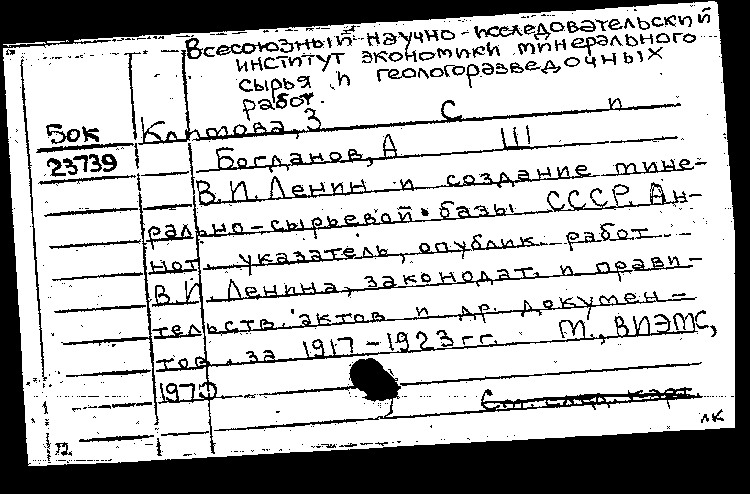 Всесоюзный научно-исследовательский
институт экономики минерального
сырья и геологоразведочных
работ.
Бок Климова, З С п
23739 Богданов, А III
В.И. Ленин и создание мине-
рально-сырьевой базы СССР. Ан-
нот. указатель опублик. работ
В.И. Ленина, законодат. и прави-
тельств. актов и др. докумен-
тов за 1917-1923 гг. М., ВИЭМС,
1970
См. след. карт.
72. лк